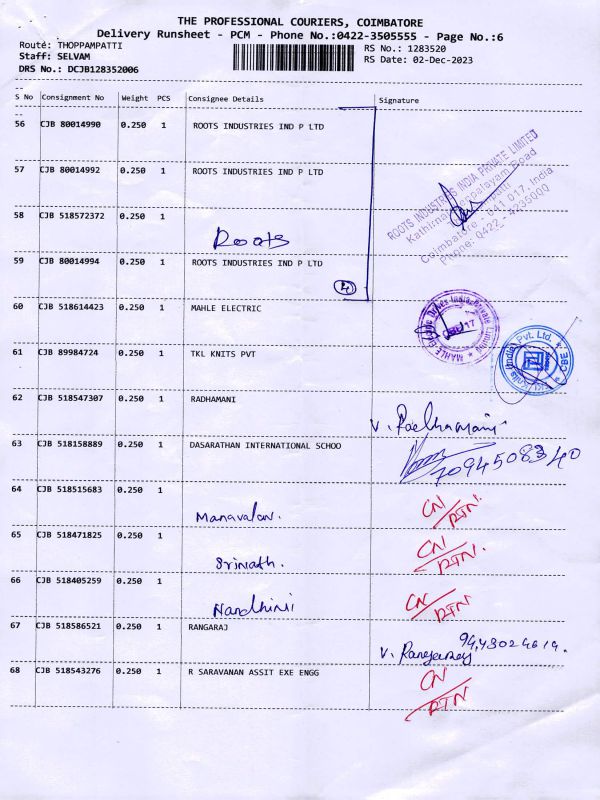 THE PROFESSIONAL COURIERS, COIMBATORE
Delivery Runsheet - PCM - Phone No.:0422-3505555 - Page No.:6
Route: THOPPAMPATTI
RS No.: 1283520
Staff: SELVAM
RS Date: 02-Dec-2023
DRS No.: DCJB128352006
S No Consignment No Weight PCS Consignee Details Signature
56 CJB 80014990 0.250 1 ROOTS INDUSTRIES IND P LTD
57 CJB 80014992 0.250 1 ROOTS INDUSTRIES IND P LTD
ROOTS INDUSTRIES INDIA PRIVATE LIMITED
Road
Coimbatore - 641 017, India
Phone: 0422 - 4235000
58 CJB 518572372 0.250 1 Roots
59 CJB 80014994 0.250 1 ROOTS INDUSTRIES IND P LTD
4
60 CJB 518614423 0.250 1 MAHLE ELECTRIC
MAHLE Electric Drives India Private Limited
61 CJB 89984724 0.250 1 TKL KNITS PVT
Knits (India) Pvt. Ltd. CBE
62 CJB 518547307 0.250 1 RADHAMANI V. Radhamani
63 CJB 518158889 0.250 1 DASARATHAN INTERNATIONAL SCHOO 7094508340
64 CJB 518515683 0.250 1 Manavalan. CN/RTN.
65 CJB 518471825 0.250 1 Srinath. CN/RTN.
66 CJB 518405259 0.250 1 Nandhini CN/RTN
67 CJB 518586521 0.250 1 RANGARAJ V. Rangaraj
68 CJB 518543276 0.250 1 R SARAVANAN ASSIT EXE ENGG CN/RTN